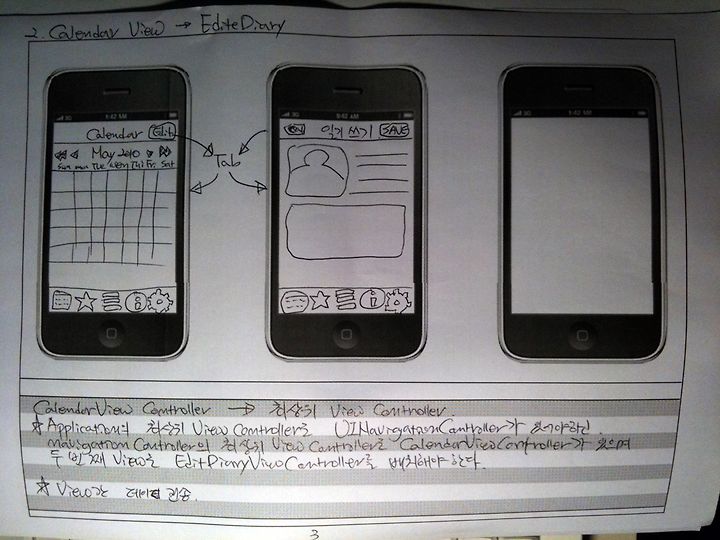 2. Calendar View → EditeDiary
3G 1:42 AM
Calendar Edit
May 2010
Sun mon Tue Wen Thu Fri Sat
Tab
3G 9:42 AM
일기 쓰기 SAVE
3G 1:42 AM
CalendarView Controller → 최상위 View Controller.
☆ Application의 최상위 View Controller를 UINavigationController가 있어야하고
navigation Controller의 최상위 View Controller는 CalendarViewController가 있으며
두 번째 View를 EditDiaryViewController를 배치해야 한다.
☆ View간 데이터 전송.
3